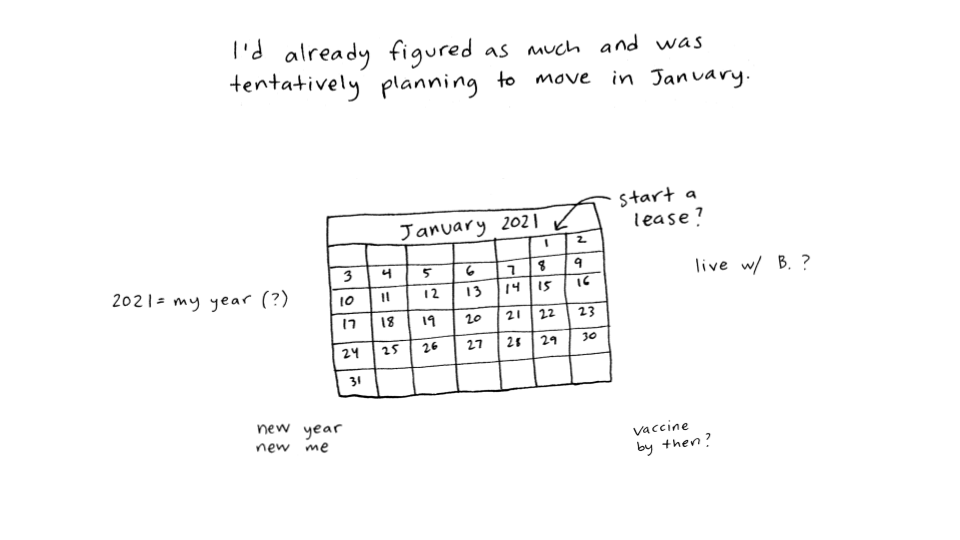 I'd already figured as much and was
tentatively planning to move in January.
start a
lease?
January 2021
1 2
3 4 5 6 7 8 9
10 11 12 13 14 15 16
17 18 19 20 21 22 23
24 25 26 27 28 29 30
31
live w/ B. ?
2021= my year (?)
new year
new me
vaccine
by then?